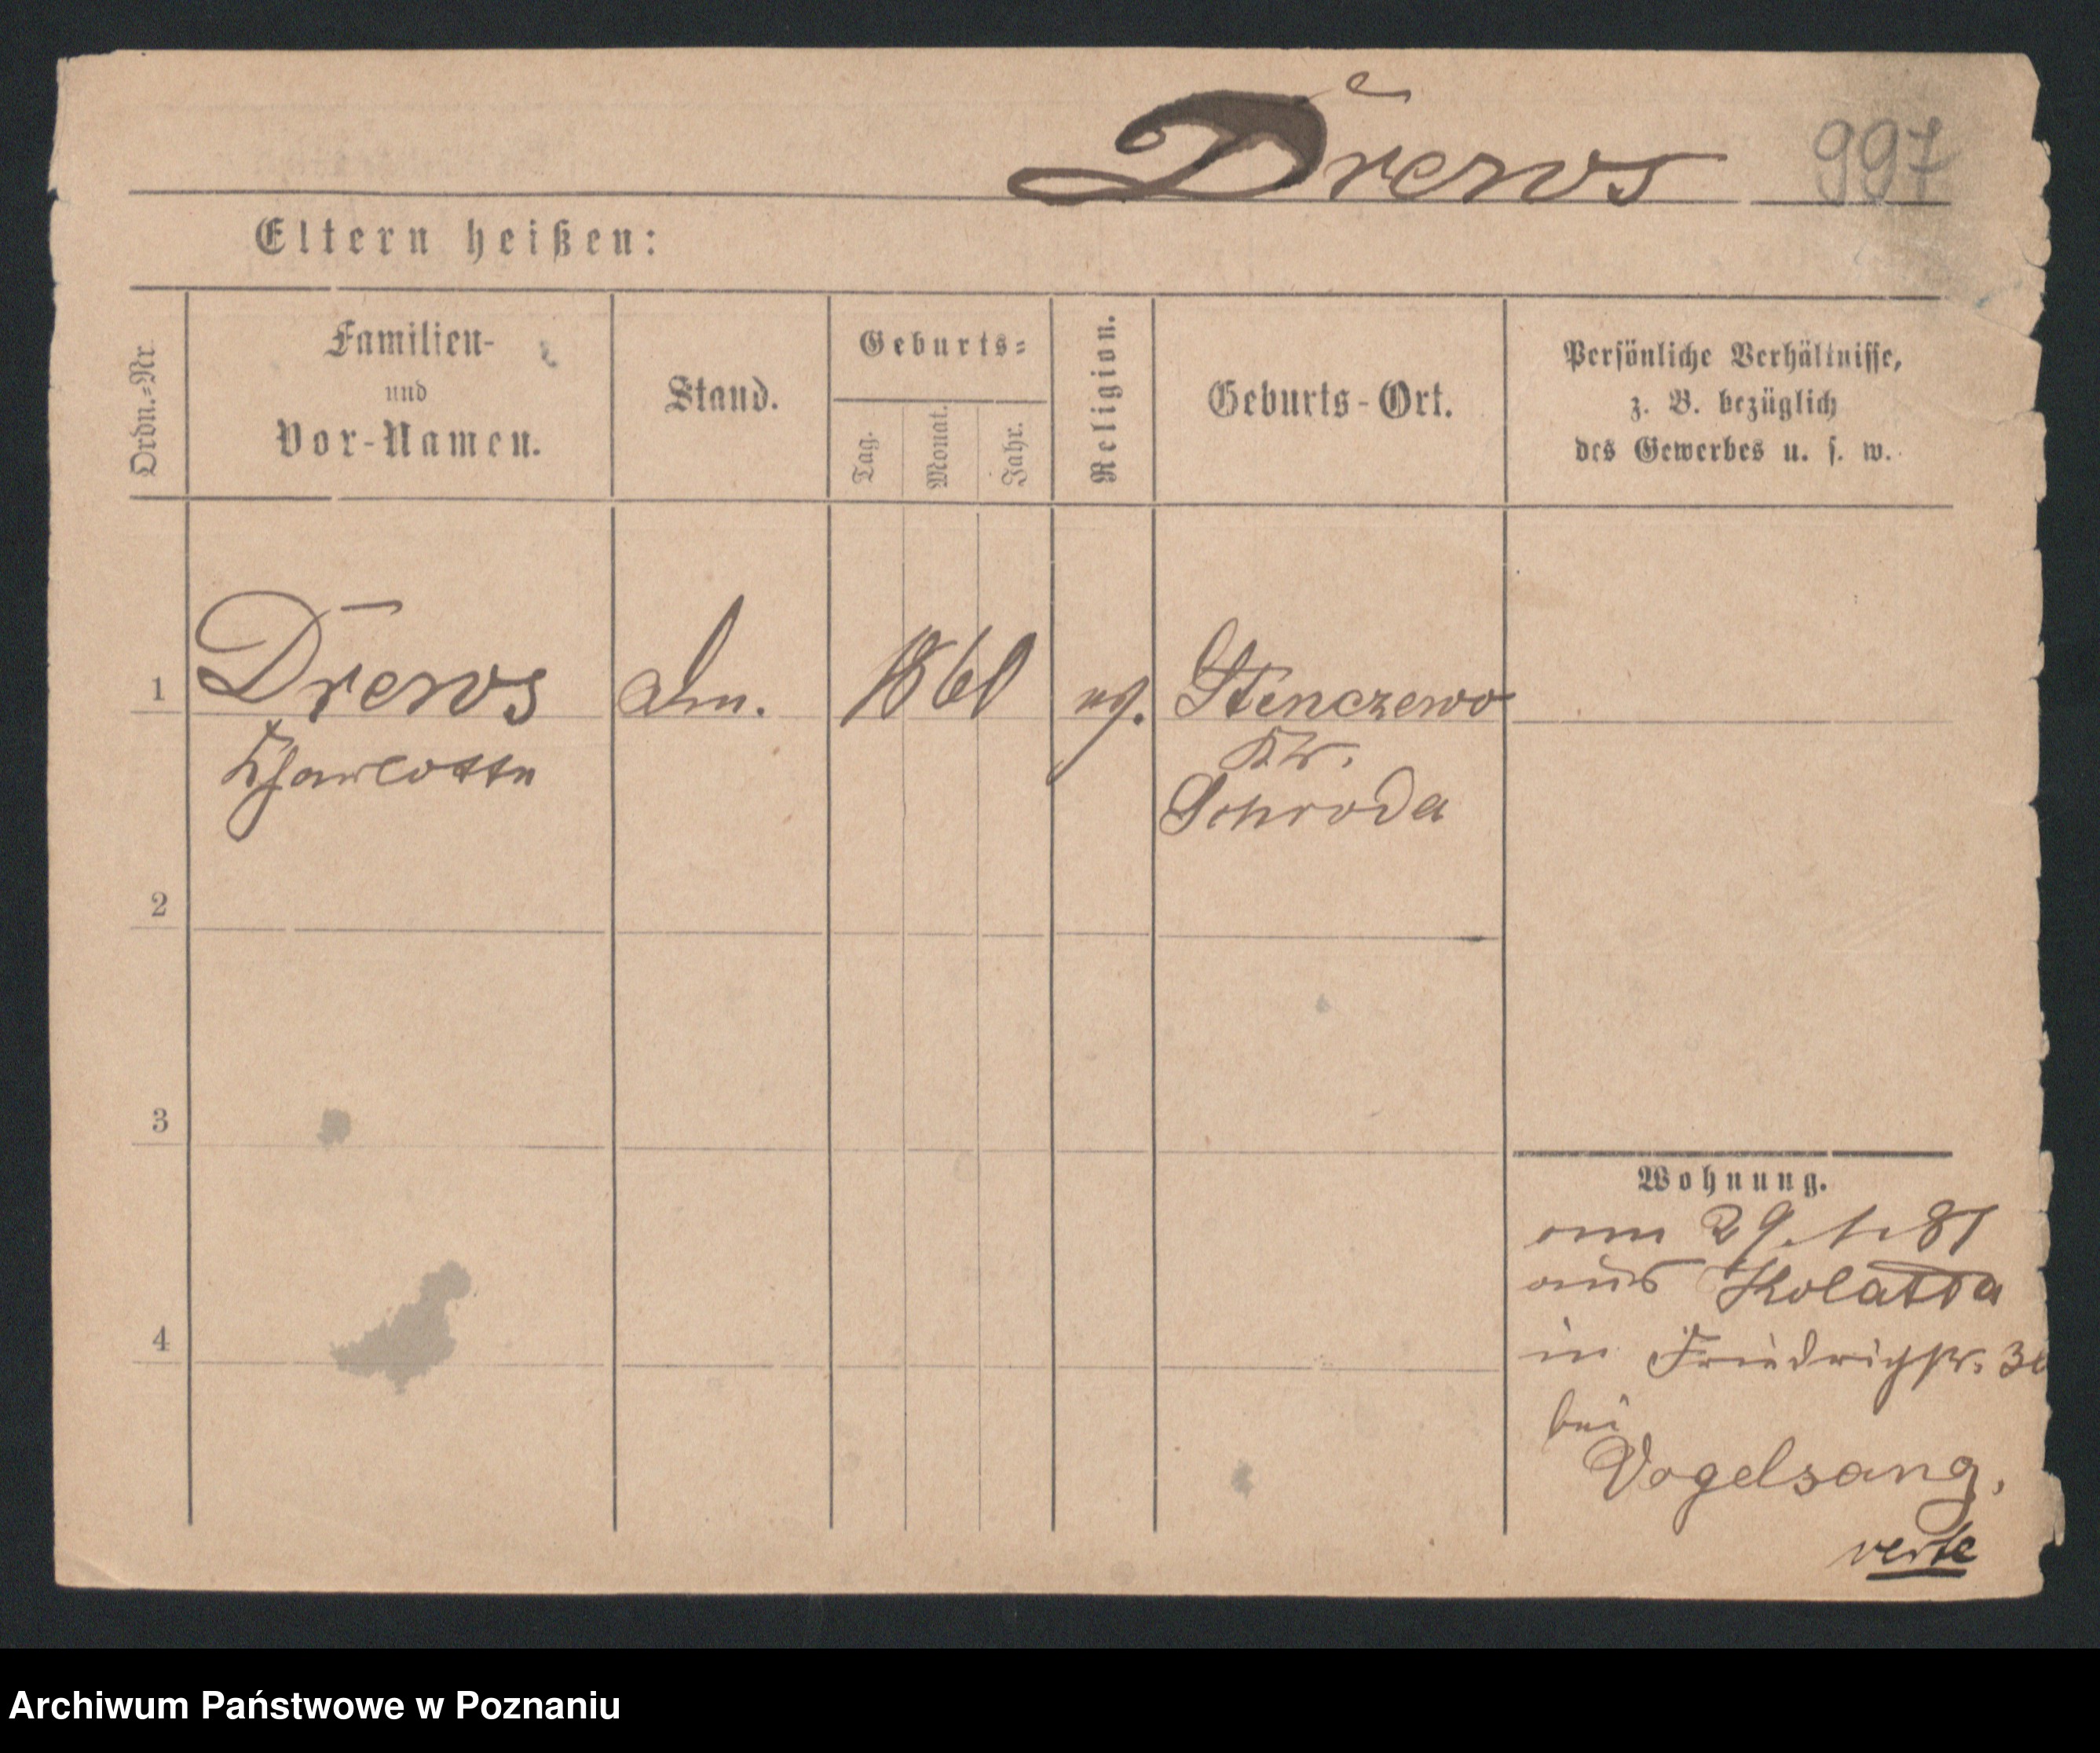 Drews 997
Eltern heißen:
Ordn.-Nr
Familien-
und
Vor-Namen.
Stand.
Geburts-
Tag.
Monat.
Jahr.
Religion.
Geburts-Ort.
Persönliche Verhältnisse,
z. B. bezüglich
des Gewerbes u. s. w.
1 Drews 1860 Stenczewo
Charlotte Kr.
Schroda
2
3
4
Wohnung.
am 29.
aus Kolatta
in Friedrichstr.
bei
Vogelsang.
verte
Archiwum Państwowe w Poznaniu